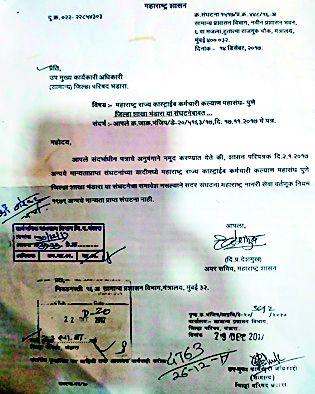 महाराष्ट्र शासन
दु.क्र. ०२२- २२८५४३०३
क्र.संघटना १५१७/प्र.क्र. ४४८/१६-अ
सामान्य प्रशासन विभाग, नवीन प्रशासन भवन,
६ वा मजला, हुतात्मा राजगुरु चौक, मंत्रालय,
मुंबई ४०००३२.
दिनांक - १४ डिसेंबर, २०१७
प्रति,
उप मुख्य कार्यकारी अधिकारी
(सामान्य) जिल्हा परिषद भंडारा.
विषय :- महाराष्ट्र राज्य कास्ट्राईब कर्मचारी कल्याण महासंघ- पुणे
जिल्हा शाखा भंडारा या संघटनेबाबत ...
संदर्भ :- आपले क्र.जाक्र.भंजिप/डे-२०/५९६३/१७, दि. १७.११.२०१७ चे पत्र.
महोदय,
आपले संदर्भाधीन पत्राचे अनुषंगाने नमूद करण्यात येते की, शासन परिपत्रक दि.२.१.२०१७
अन्वये मान्यताप्राप्त संघटनांच्या यादीमध्ये महाराष्ट्र राज्य कास्ट्राईब कर्मचारी कल्याण महासंघ- पुणे
जिल्हा शाखा भंडारा या संघटनेचा समावेश नसल्याने सदर संघटना महाराष्ट्र नागरी सेवा वर्तणूक नियम
१९७९ अन्वये मान्यता प्राप्त संघटना नाही.
आपला,
(दि.प्र.देशमुख)
अवर सचिव, महाराष्ट्र शासन
निवडनस्ती १६-अ सामान्य प्रशासन विभाग,मंत्रालय, मुंबई ३२.
D-20
सामान्य प्रशासन विभाग,
जिल्हा परिषद, भंडारा.
4763
26-12-17
(सामान्य)
जिल्हा परिषद भंडारा